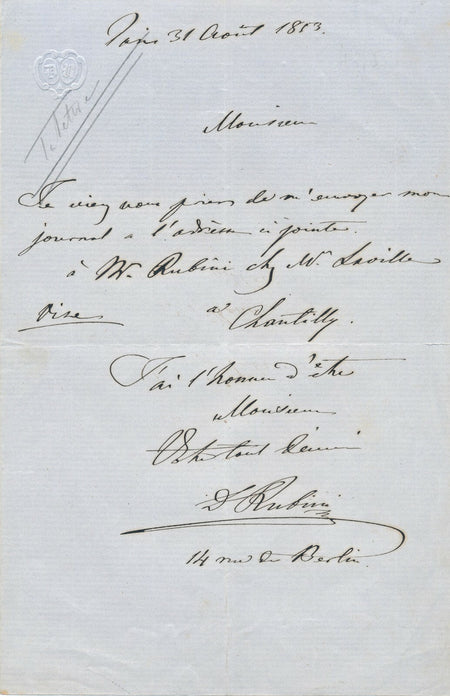 Paris 31 Août 1853.
Monsieur
Je viens vous prier de m'envoyer mon
journal a l'adresse ci jointe.
à Mr. Rubini chez Mr. Laville
a Chantilly.
J'ai l'honneur d'être
Monsieur
Votre tout dévoué
D Rubini
14 rue de Berlin.